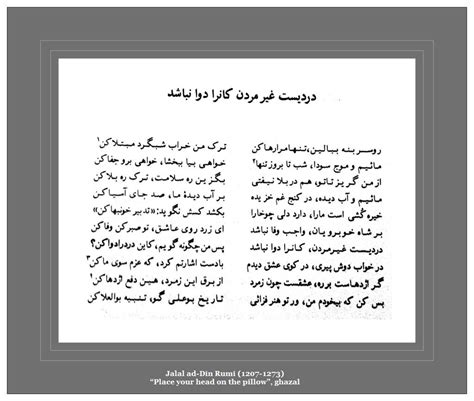 دردیست غیر مردن کانرا دوا نباشد
رو سر بنه ببالین، تنها مرا رها کن ترک من خراب شبگرد مبتلا کن¹
مائیم و موج سودا، شب تا بروز تنها خواهی بیا ببخشا، خواهی برو جفا کن
از من گریز تا تو، هم در بلا نیفتی بگزین ره سلامت، ترک ره بلا کن
مائیم و آب دیده، در کنج غم خزیده بر آب دیدهٔ ما، صد جای آسیا کن
خیره کُشی است مارا، دارد دلی چو خارا بکشد کسش نگوید: «تدبیر خونبها کن»
بر شاه خوبرویان، واجب وفا نباشد ای زرد روی عاشق، تو صبر کن وفا کن
دردیست غیر مردن، کانرا دوا نباشد پس من چگونه گویم، کاین درد را دوا کن؟
در خواب دوش پیری، در کوی عشق دیدم با دست اشارتم کرد، که عزم سوی ما کن
گر اژدهاست بر ره، عشقست چون زمرد از برق این زمرد، هین دفع اژدها کن
بس کن که بیخودم من، ور تو هنر فزائی تاریخ بوعلی گو، تنبیه بوالعلا کن
Jalal ad-Din Rumi (1207-1273)
“Place your head on the pillow”, ghazal